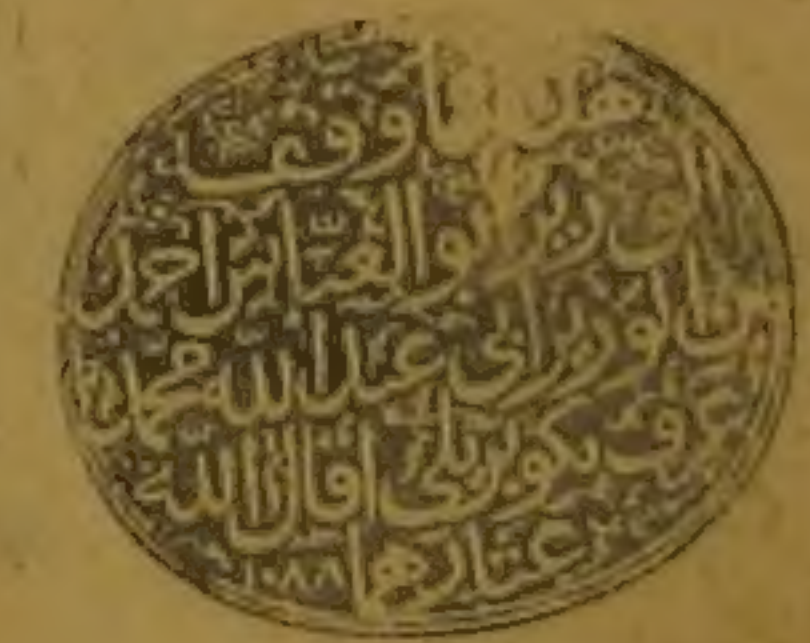 هذا ما وقف
الوزير أبو العباس احمد
بن الوزير ابي عبد الله محمد
عرف بكوبريلي اقال الله
عثارهما ١٠٨٨